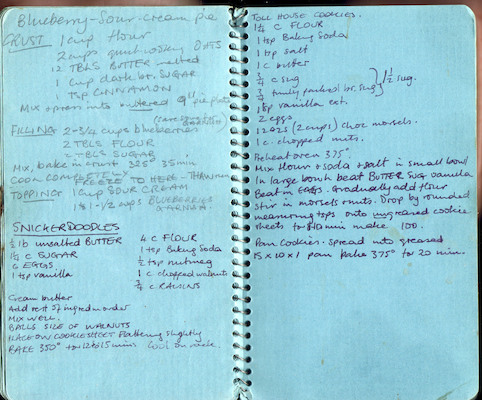 Blueberry-Sour-Cream Pie
CRUST 1 cup flour
2 cups quick cooking OATS
12 TBLS BUTTER melted
1 cup dark br. SUGAR
1 TSP CINNAMON
Mix + press into buttered 9" pie plate
FILLING 2-3/4 cups blueberries
2 TBLS FLOUR
2 TBLS SUGAR
Mix, bake in crust 325° 35 min
COOL COMPLETELY
FREEZE TO HERE - THAW
TOPPING: 1 cup SOUR CREAM
1 1/2 cups BLUEBERRIES
GARNISH
SNICKERDOODLES
1/2 lb unsalted BUTTER
SUGAR
EGGS
1 tsp vanilla
4 c FLOUR
1 tsp Baking Soda
1/2 tsp nutmeg
1 c chopped walnuts
3/4 c RAISINS
Cream butter
Add rest of ingred in order
MIX WELL.
BALLS SIZE OF WALNUTS
PLACE ON COOKIE SHEET flattening slightly
BAKE 350° to 12 to 15 mins Cool on rack.
TOLL HOUSE COOKIES.
1/4 c FLOUR
1 tsp Baking Soda
1 tsp salt
1 c butter
3/4 c sug
3/4 firmly packed br. sug } 1 1/2 sug.
vanilla ext.
2 eggs
12 ozs (2 cups) choc morsels.
1 c. chopped nuts.
Preheat oven 375°
Mix flour + soda + salt in small bowl
In large bowl beat BUTTER SUG vanilla
Beat in EGGS. Gradually add flour
stir in morsels + nuts. Drop by rounded
measuring tsps onto ungreased cookie
sheets 10 min make 100.
Pan cookies: spread into greased
15 x 10 x 1 pan bake 375° to 20 min.